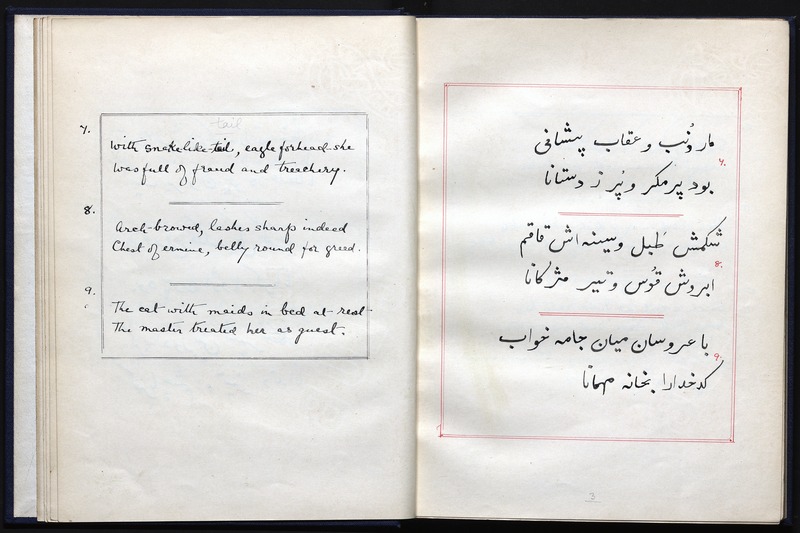 tail
7.
With snakelike-tail, eagle forhead she
Was full of fraud and treachery.
8.
Arch-browed, lashes sharp indeed
Chest of ermine, belly round for greed.
9.
The cat with maids in bed at rest
The master treated her as guest.
مار دُنب و عقاب پیشانی
7.
بود پر مکر و پُر ز دستانا
شکمش طَبل و سینه اش قاقم
8.
ابروش قَوس و تیر مژگانا
با عروسان میان جامه خواب
9.
کدخدا را بخانه مهمانا
3